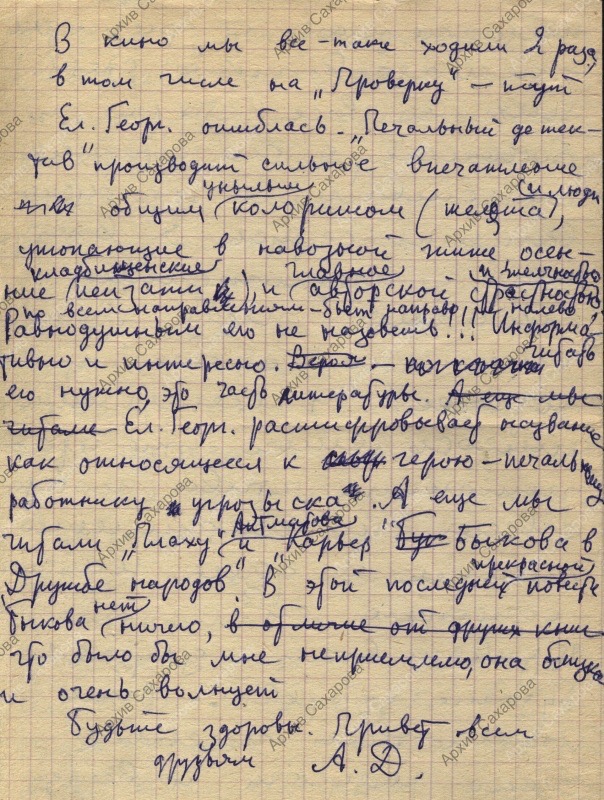 В кино мы все-таки ходили 2 раза,
в том числе на „Проверку" – тут
Ел. Георг. ошиблась. „Печальный детек-
тив" производит сильное впечатление
общим унылым колоритом (желтая, и люди
утопающие в навозной жиже осен-
ние кладбищенские пейзажи), и главное авторской страстностью и желчностью
по всем направлениям – бьет направо и налево
Равнодушным его не назовешь!!! Информа-
тивно и интересно. читать
его нужно, это часть литературы. А еще мы
читали Ел. Георг. расшифровывает название
как относящееся к герою – печальному
работнику угрозыска. А еще мы
читали „Плаху" Айтматова и „Карьер" Быкова в
Дружбе народов". В этой последней прекрасной повести
Быкова нет ничего, в отличие от других книг
что было бы мне неприемлемо, она
и очень волнует
Будьте здоровы. Привет всем
друзьям А. Д.
Архив Сахарова